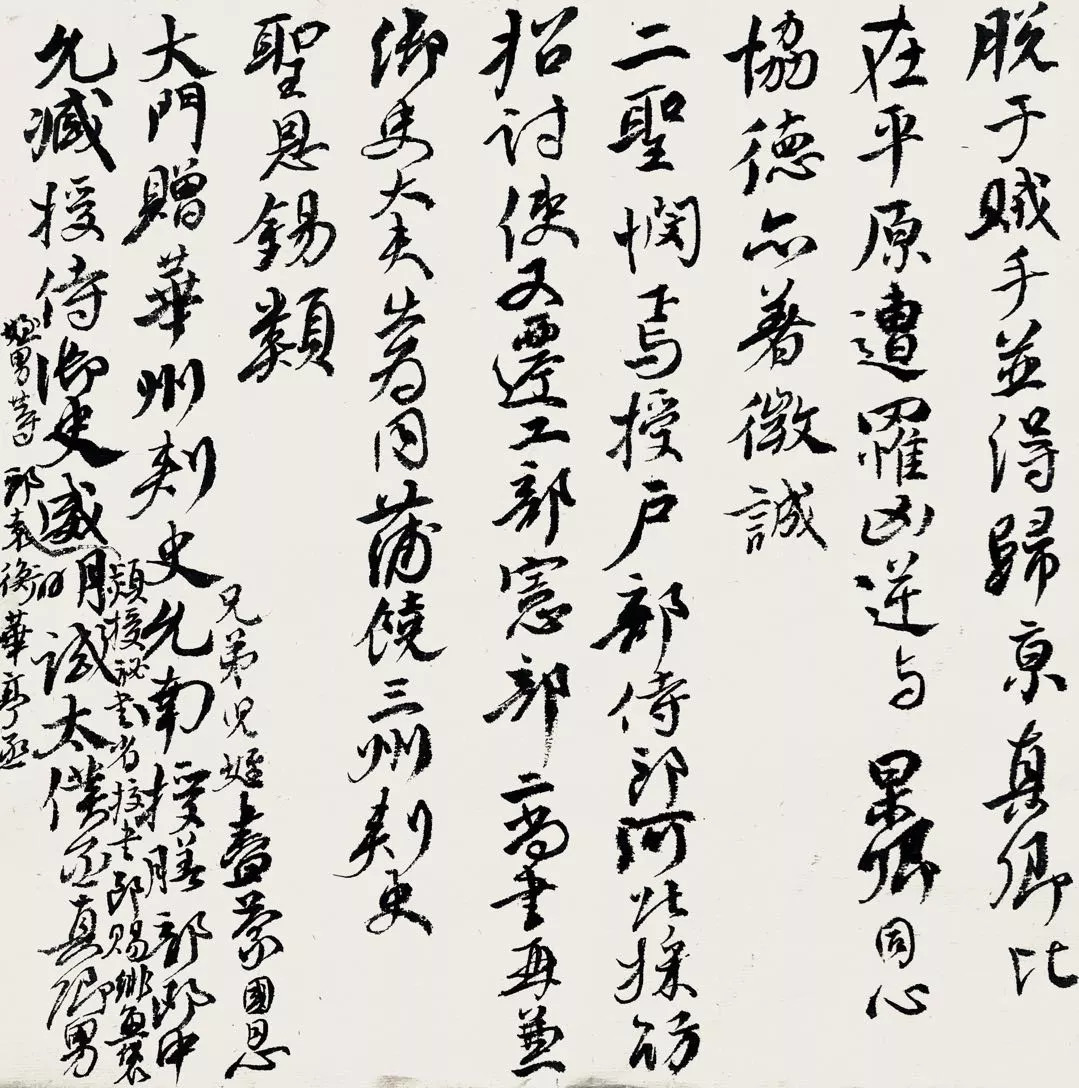 脱于賊手並得歸京真卿比
在平原遭罹凶逆与杲卿同心
協德亦著微誠
二聖憫焉授户部侍郎河北採訪
招討使又遷工部憲部二尚書再兼
御史大夫出為同蒲饒三州刺史
聖恩錫類
兄弟児姪盡蒙國恩
大門贈華州刺史允南授膳部郎中
頲授秘書省校書郎賜緋魚袋
允臧授侍御史威明試太僕丞真卿男
姪男等華亭丞